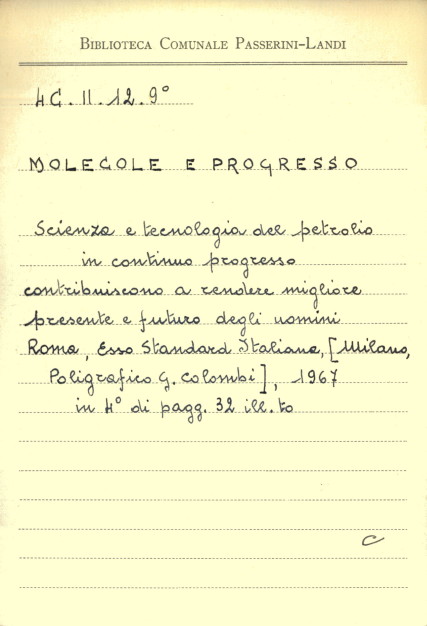 BIBLIOTECA COMUNALE PASSERINI-LANDI
4C. II. 12. 9°
MOLECOLE E PROGRESSO
Scienza e tecnologia del petrolio
in continuo progresso
contribuiscono a rendere migliore
presente e futuro degli uomini
Roma, Esso Standard Italiana, [Milano,
Poligrafico G. Colombi], 1967
in 4° di pagg. 32 ill. to
C